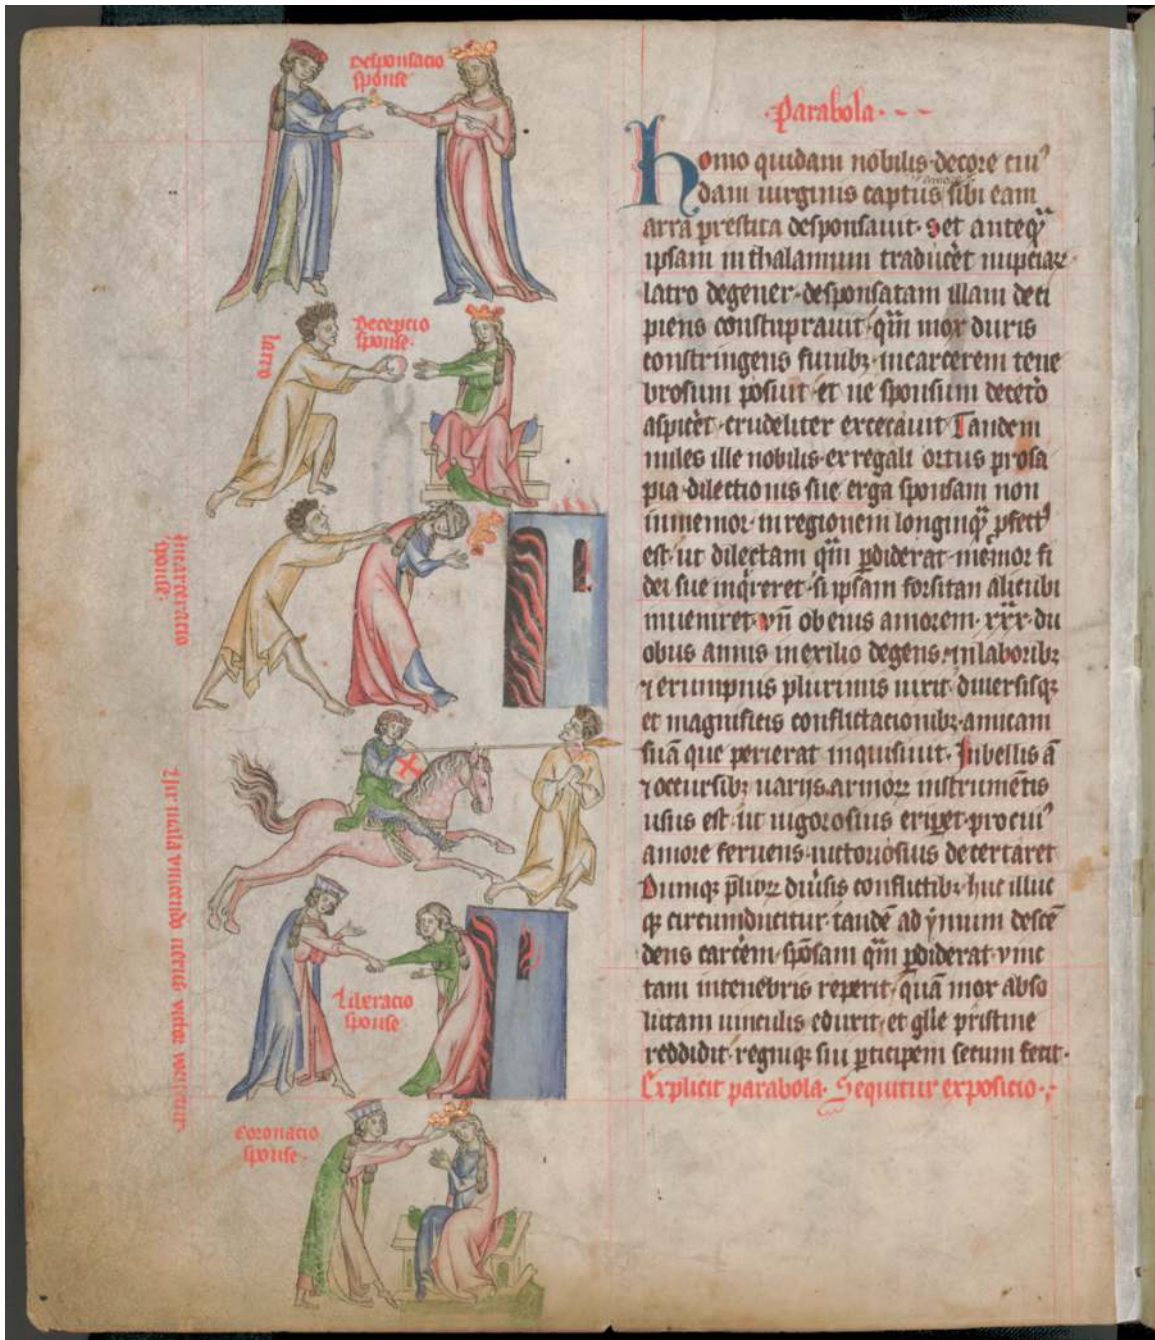 Desponsacio
sponse
latro
Decepcio
sponse·
Incarceracio
sponse·
Hic mala vincendo verus victor vocitatur·
Liberacio
sponse·
Coronacio
sponse·
·Parabola·
Homo quidam nobilis·decore cuiꝰ
dam uirginis captus sibi eam
arra prestita desponsauit· Set anteqͣ
ipsam in thalamum traducĕt nupciaꝝ·
latro degener·desponsatam illam deci
piens constuprauit·qͣm mox duris
constringens funibꝫ·in carcerem tene
brosum posuit·et ne sponsum decetō
aspicĕt·crudeliter excecauit· Tandem
miles ille nobilis·ex regali ortus prosa
pia·dilectionis sue erga sponsam non
inmemor·in regionem longinqͣ ꝓfectꝰ
est·ut dilectam qͣm ꝑdiderat·memor fi
dei sue inqͥreret·si ipsam forsitan alicubi
inueniret·Vn̄ ob eius amorem·xxx·du
obus annis in exilio degens·in laboribꝫ
⁊ erumpnis plurimis uixit·diuersisqꝫ
et magnificis conflictacionibꝫ·amicam
suā que perierat inquisiuit· In bellis ā
⁊ occursibꝫ uarijs·armoꝝ instrumētis
usus est·ut uigorosius eriꝑet·pro cuiꝰ
amore feruens·uictoriosius decertaret
Dumqꝫ p̄lioꝝ diuˀsis conflictibꝫ·huc illuc
qꝫ circumducitur·tandē ad ymum descē
dens carcĕm·sp̄osam qͣm ꝑdiderat·vinc
tam in tenebris reperit·quā mox abso
lutam uinculis eduxit·et gl̄ie pristine
reddidit·regniqꝫ sui ꝑticipem secum fecit·
Explicit parabola· Sequitur exposicio·